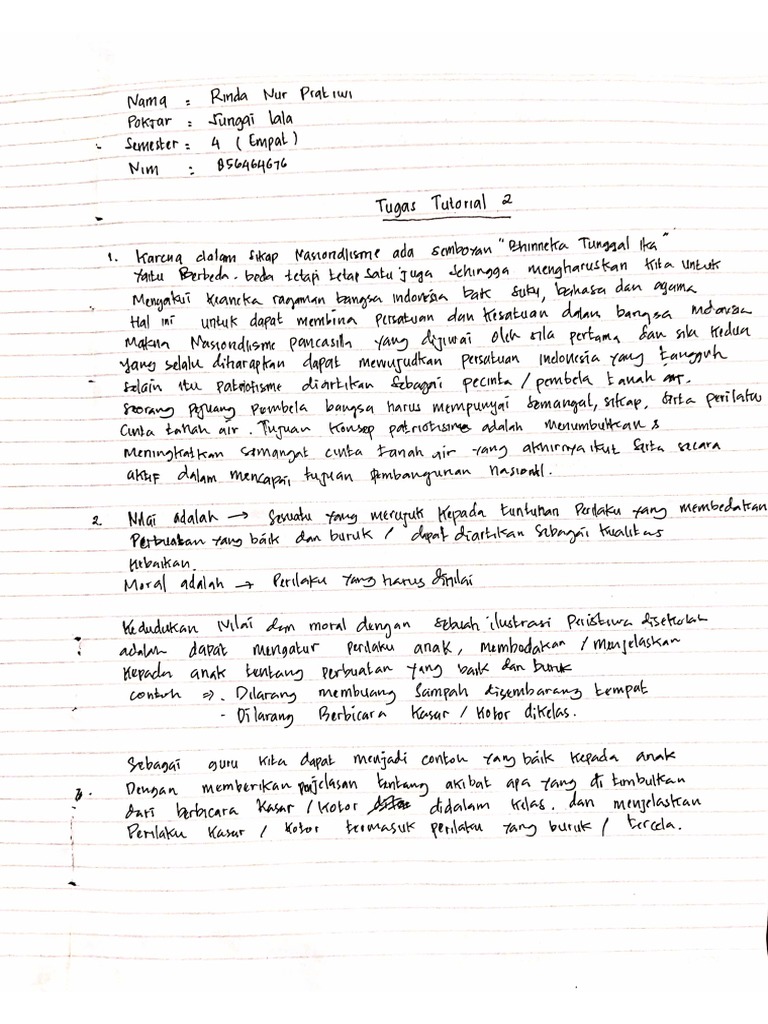 Nama : Rinda Nur Pratiwi
Pokjar : Sungai lala
Semester : 4 ( Empat )
Nim : 856464676
Tugas Tutorial 2
1. Karena dalam sikap Nasionalisme ada semboyan "Bhinneka Tunggal Ika"
Yaitu Berbeda-beda tetapi tetap satu juga sehingga mengharuskan kita untuk
Mengakui keaneka ragaman bangsa Indonesia baik suku, bahasa dan agama
Hal ini untuk dapat membina persatuan dan kesatuan dalam bangsa Indonesia
Makna Nasionalisme pancasila yang dijiwai oleh sila pertama dan sila kedua
yang selalu diharapkan dapat mewujudkan persatuan Indonesia yang tangguh
selain itu patriotisme diartikan sebagai pecinta / pembela tanah air.
seorang pejuang pembela bangsa harus mempunyai semangat, sikap, serta perilaku
cinta tanah air. Tujuan konsep patriotisme adalah menumbuhkan &
Meningkatkan semangat cinta tanah air yang akhirnya ikut serta secara
aktif dalam mencapai tujuan pembangunan nasional.
2. Nilai adalah → sesuatu yang merujuk kepada tuntunan perilaku yang membedakan
Perbuatan yang baik dan buruk / dapat diartikan sebagai kualitas
kebaikan.
Moral adalah → Perilaku yang harus dinilai
Kedudukan Nilai dan moral dengan sebuah ilustrasi Peristiwa disekolah
adalah dapat mengatur perilaku anak, membedakan / menjelaskan
kepada anak tentang perbuatan yang baik dan buruk
contoh ⇒ - Dilarang membuang sampah disembarang tempat
- Dilarang Berbicara kasar / kotor dikelas.
Sebagai guru kita dapat menjadi contoh yang baik kepada anak
3. Dengan memberikan penjelasan tentang akibat apa yang di timbulkan
dari berbicara kasar / kotor didalam kelas. dan menjelaskan
Perilaku kasar / kotor termasuk perilaku yang buruk / tercela.